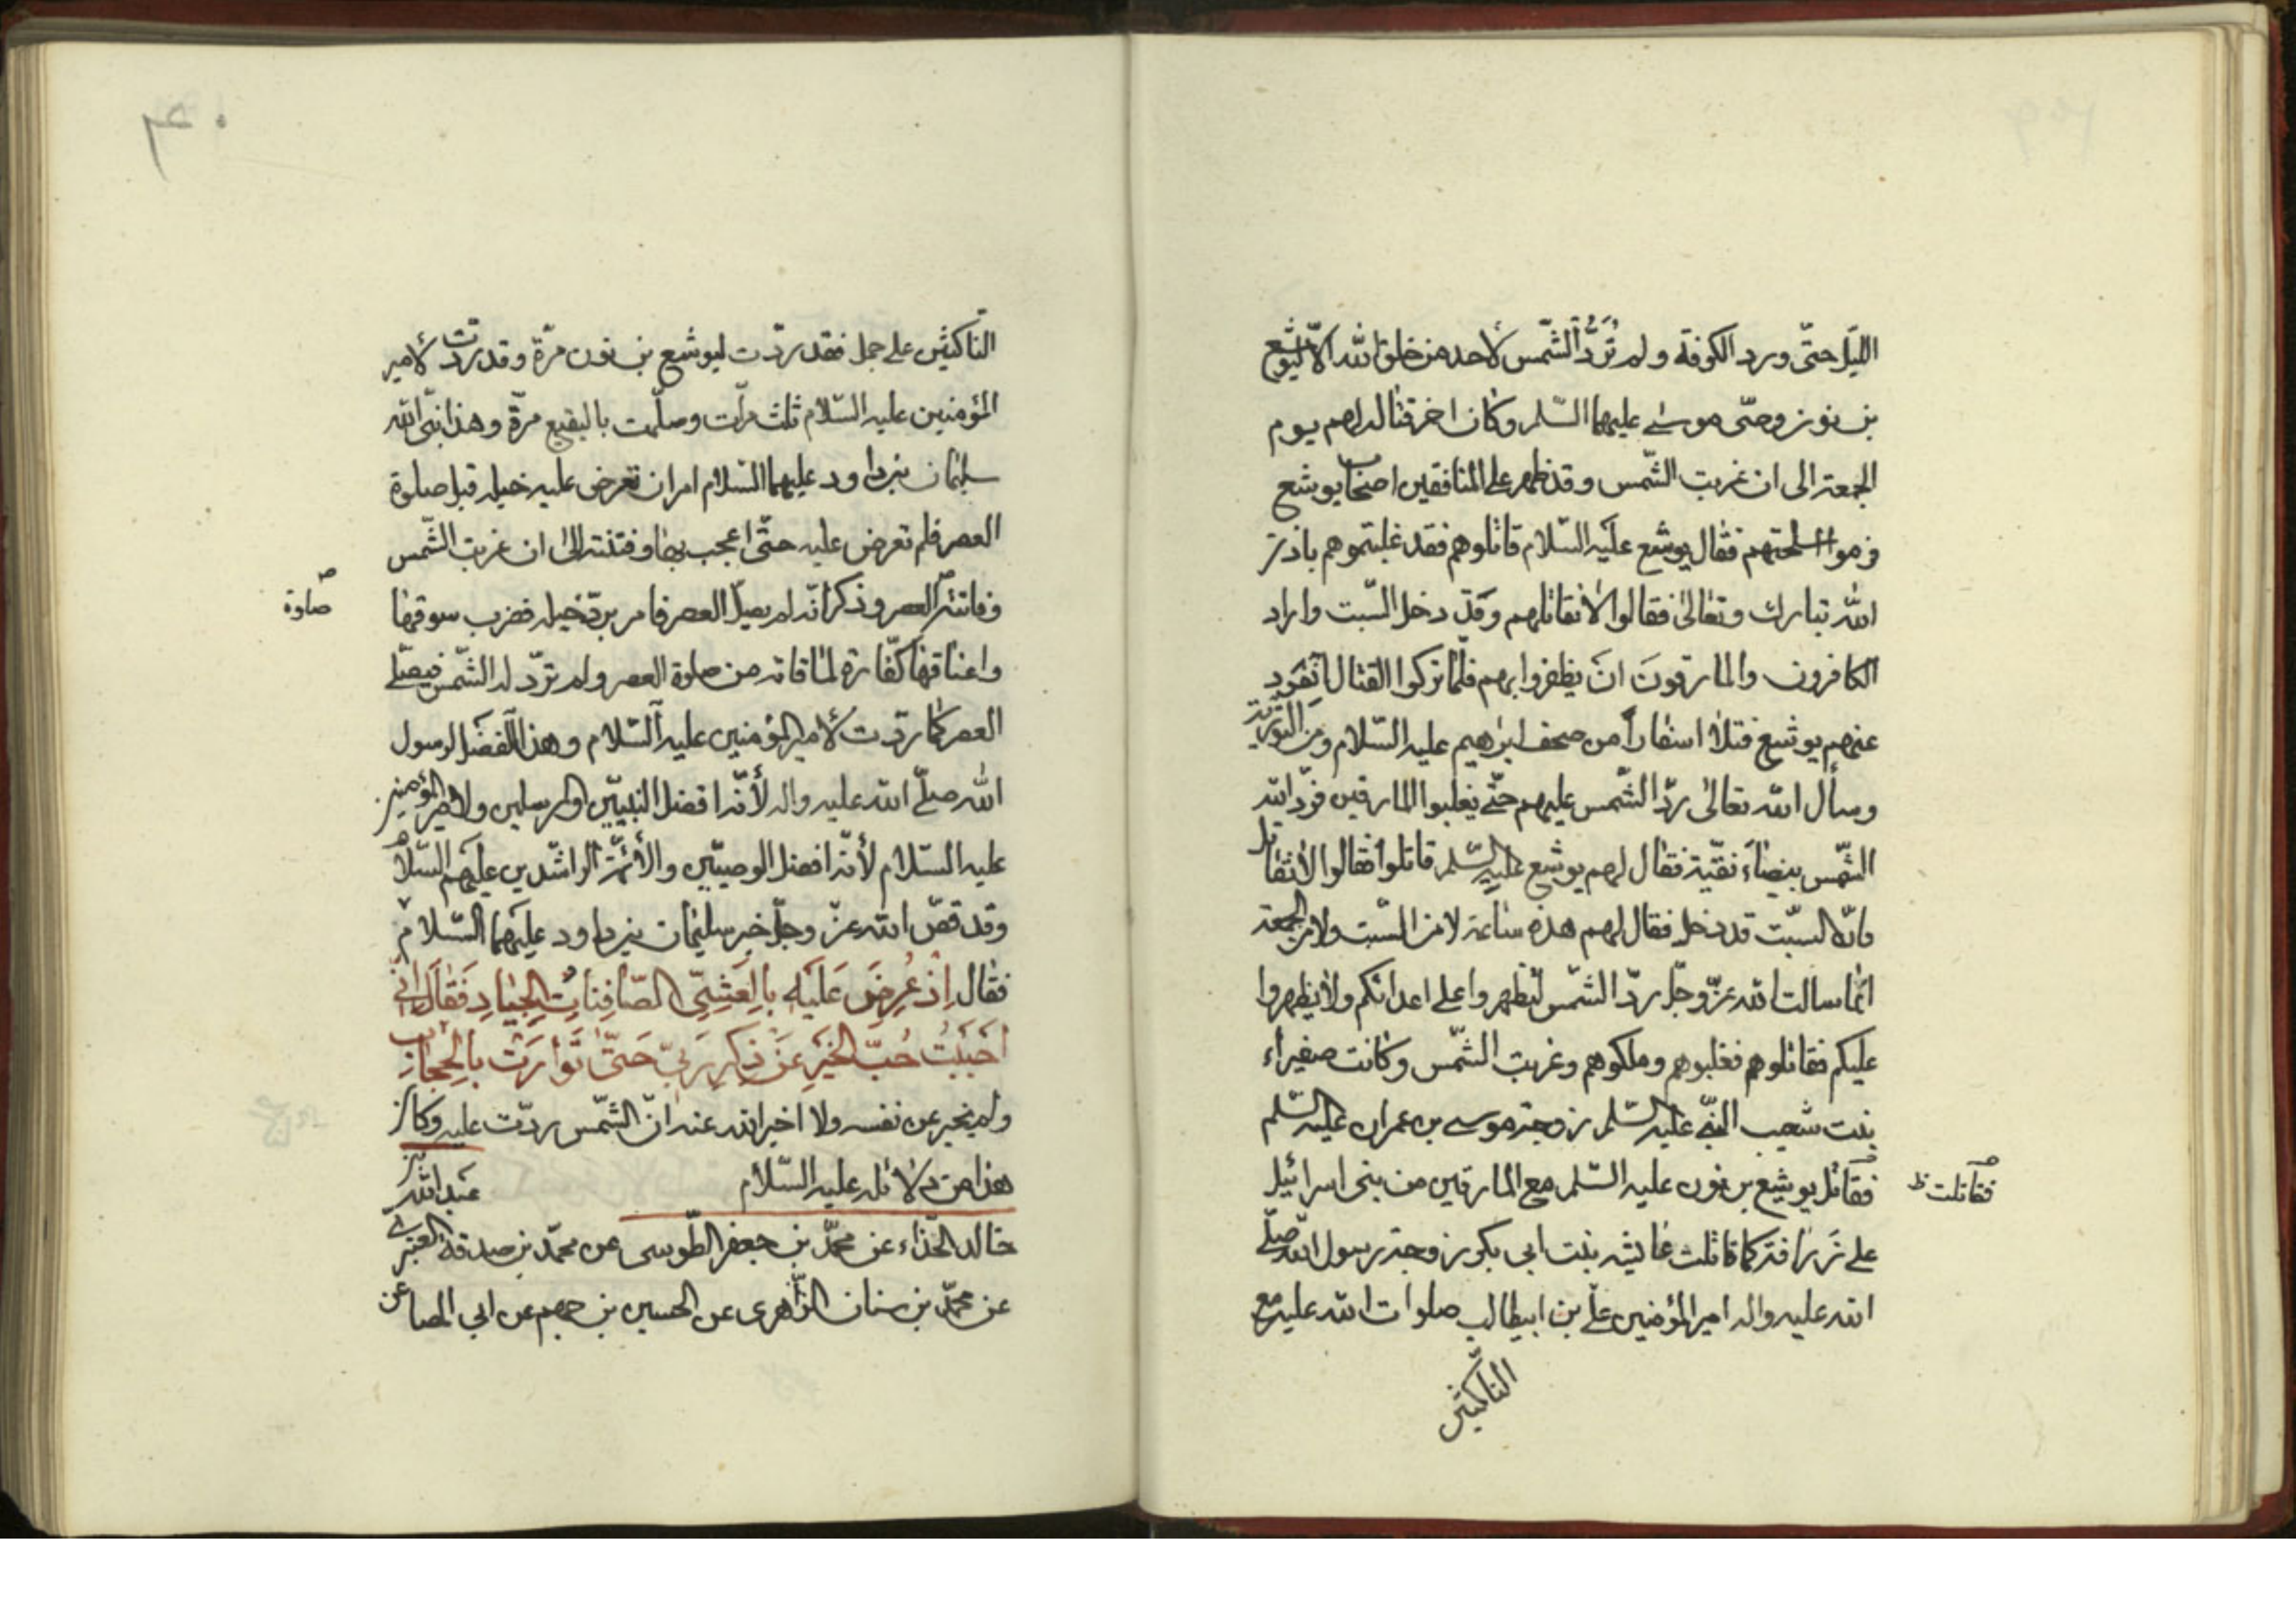 الليل حتّى ورد الكوفة ولم تُرَدُّ الشّمس لأحد من خلق الله الّا ليوشع
بن نون وصّى موسى عليهما السّلم وكان اخر قتاله لهم يوم
الجمعة الى ان غربت الشّمس وقد ظهر على المنافقين اصحاب يوشع
فقال يوشع عليه السّلام قاتلوهم فقد غلبتموهم باذن
الله تبارك وتعالى فقالوا لا نقاتلهم وقد دخل السّبت واراد
الكافرون والمارقونَ انَ يظفروا بهم فلمّا تركوا القتال انفرد
عنهم يوشع فتلا اسفاراً من صحف ابراهيم عليه السّلام ومن التورية
وسأل الله تعالى ردّ الشّمس عليهم حتّى يغلبوا المارقين فردّ الله
الشّمس بيضاء نقيّة فقال لهم يوشع عليه السّلم قاتلوا فقالوا لا نقاتل
فانّه السبت قد دخل فقال لهم هذه ساعة لا من السّبت ولا من الجمعة
انّما سالت الله عزّ وجلّ ردّ الشّمس لتظهروا على اعدائكم ولا يظهروا
عليكم فقاتلوهم فغلبوهم وملكوهم وغربت الشّمس وكانت صفيراء
بنت شعيب النّبى عليه السّلم زوجة موسى بن عمران عليه السّلم
فقاتل يوشع بن نون عليه السّلم مع المارقين من بنى اسرائيل
فقاتلت ظ
على زرافة كما قاتلت عايشه بنت ابى بكر زوجة رسول الله صلّى
الله عليه واله امير المؤمنين علّى بن ابيطالب صلوات الله عليه مع
الناكثين
الناكثين على جمل فقد ردّت ليوشع بن نون مرّة وقد ردّت لأمير
المؤمنين عليه السّلام ثلث مرّات وسلّمت بالبقيع مرّة وهذا نبىّ الله
سليمان بن داود عليهما السّلام امر ان تعرض عليه خيله قبل صلوة
العصر فلم تعرض عليه حتّى اعجب بها وفتنته الى ان غربت الشّمس
وفاتته العصر وذكر انّه لم يصلّ العصر فامر بردّ خيله فضرب سوقها
صلوة
واعناقها كفّارة لما فاته من صلوة العصر ولم تردّ له الشّمس فيصلّى
العصر كما ردّت لأمير المؤمنين عليه السّلام وهذا لفضل الرسول
الله صلّى الله عليه واله لأنّه افضل النبيّين والمرسلين ولأمير المؤمنين
عليه السّلام لأنّه افضل الوصيّين والأئمّة الراشدين عليهم السّلام
وقد قصّ الله عزّ وجلّ خبر سليمان بن داود عليهما السّلام
فقال اِذْ عُرِضَ عَلَيْهِ بِالْعَشِيِّ الصّافِنَاتُ الْجِيَادِ فَقَالَ اِنّى
اَحْبَبْتُ حُبّ الْخَيْرِ عَنْ ذِكْرِ رَبّى حَتّى تَوَارَتْ بِالْحِجَابِ
ولم يخبر عن نفسه ولا اخبر الله عنه انّ الشّمس ردّت عليه وكان
هذا من دلائله عليه السّلام عبد الله بن
خالد الحذّاء عن محمّد بن جعفر الطّوسى عن محمّد بن صدقة العنبرى
عن محمّد بن سنان الزّاهرى عن الحسين بن جهم عن ابى المصاعن